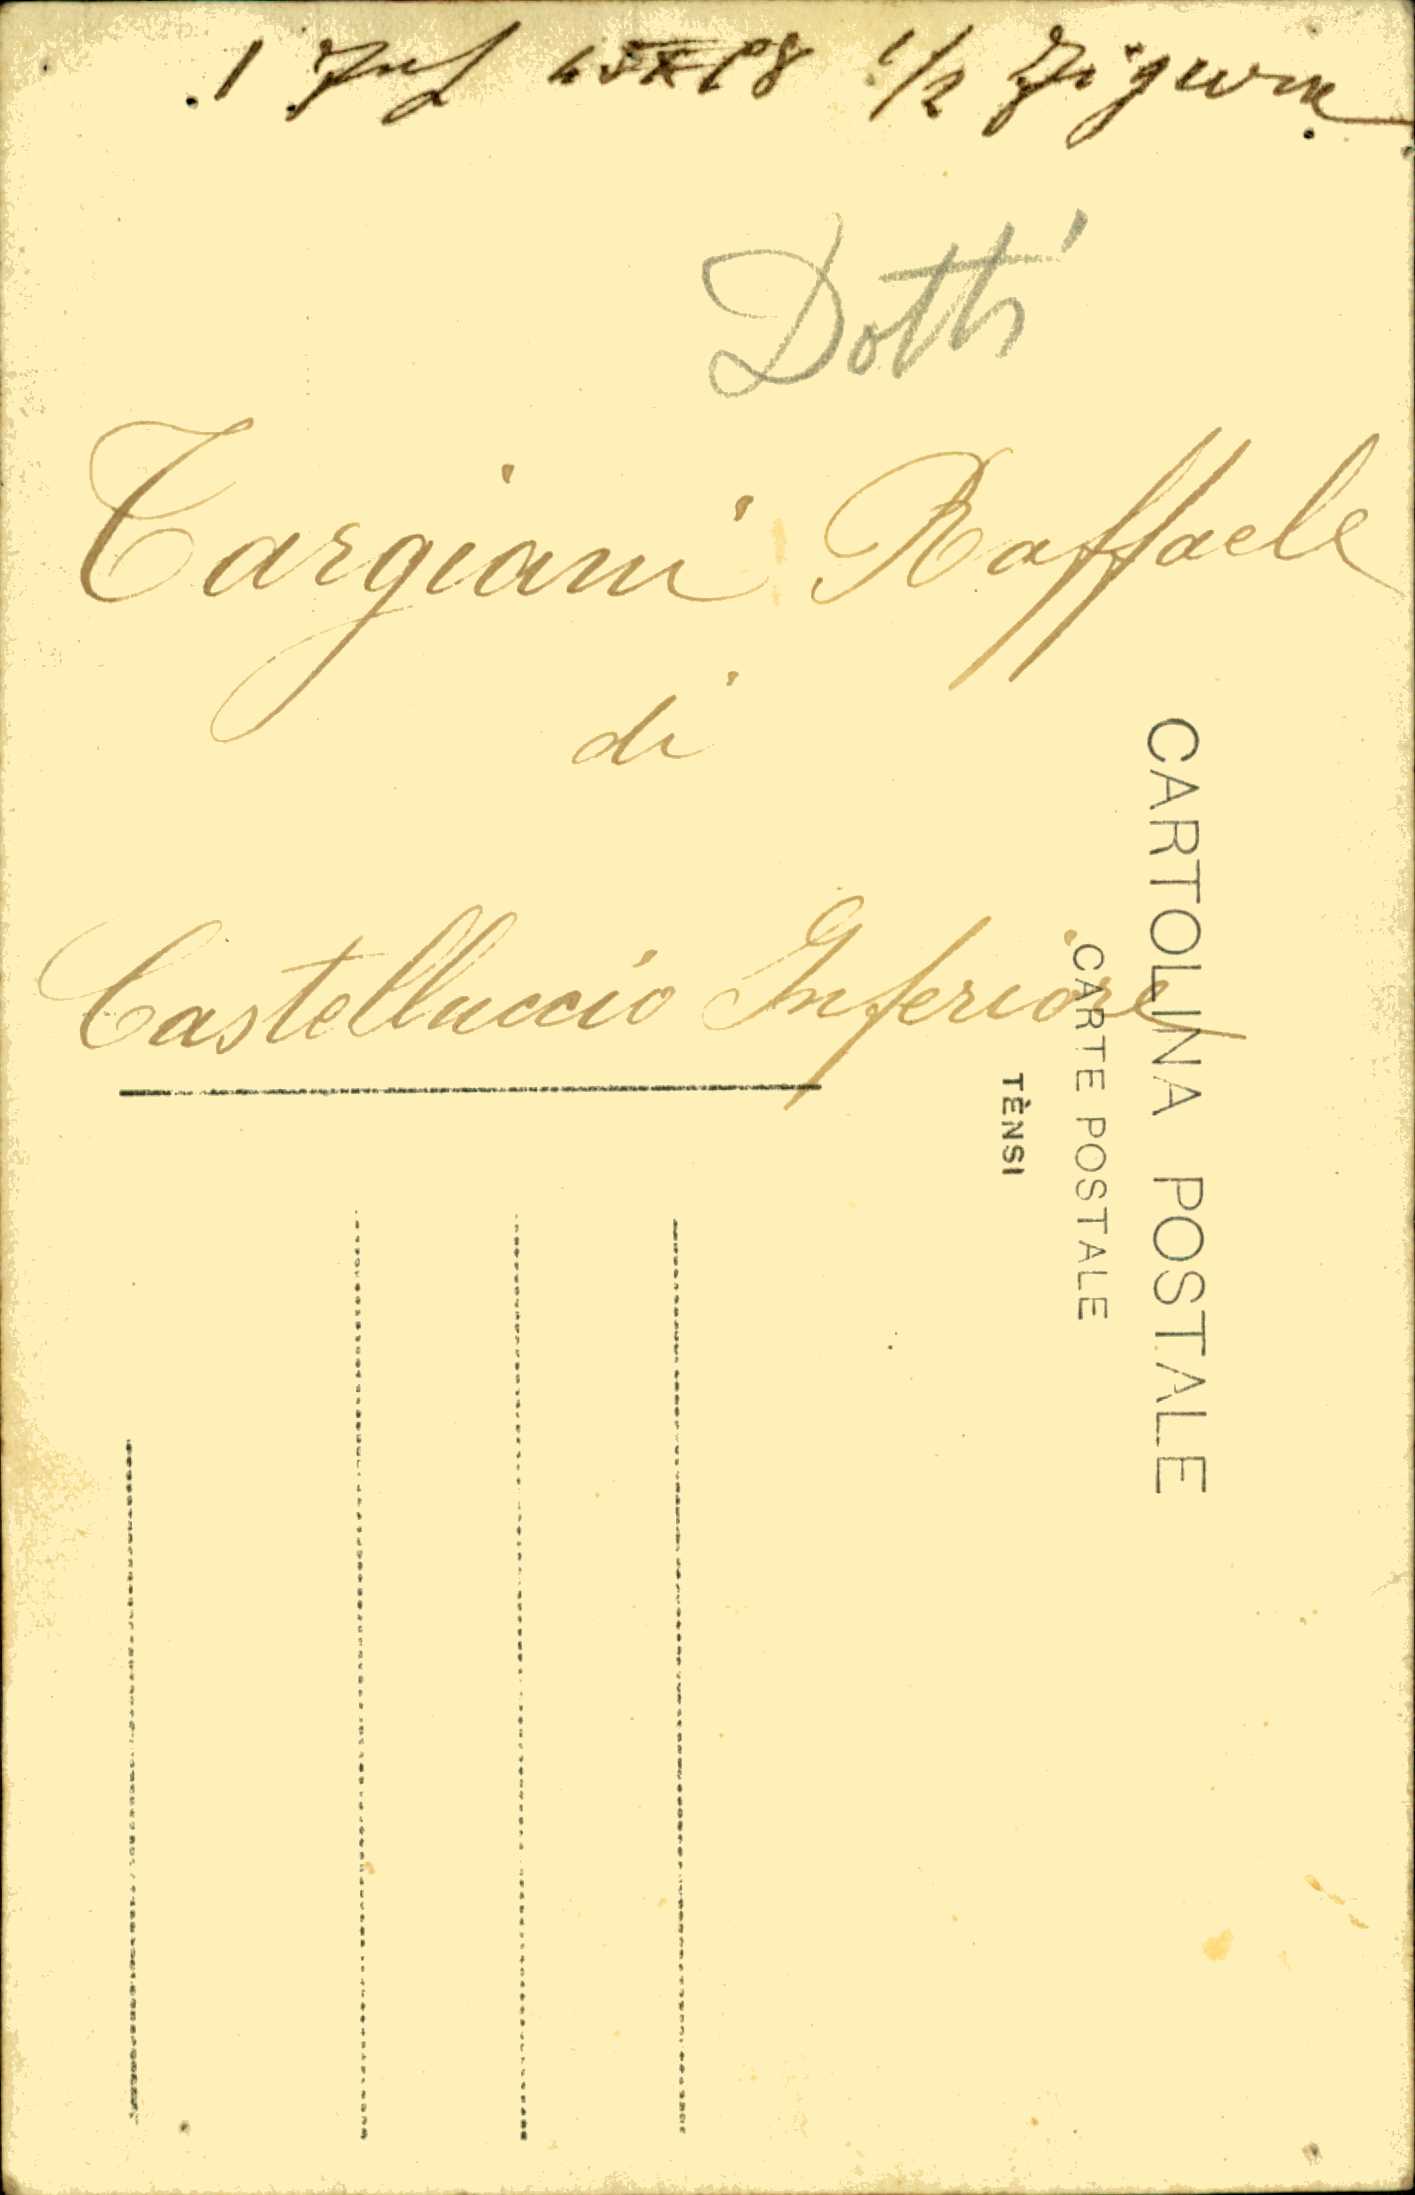 1 Inf 1/2 figura
Dotti
Targiani Raffaele
di
Castelluccio Inferiore
CARTOLINA POSTALE
CARTE POSTALE
TÈNSI